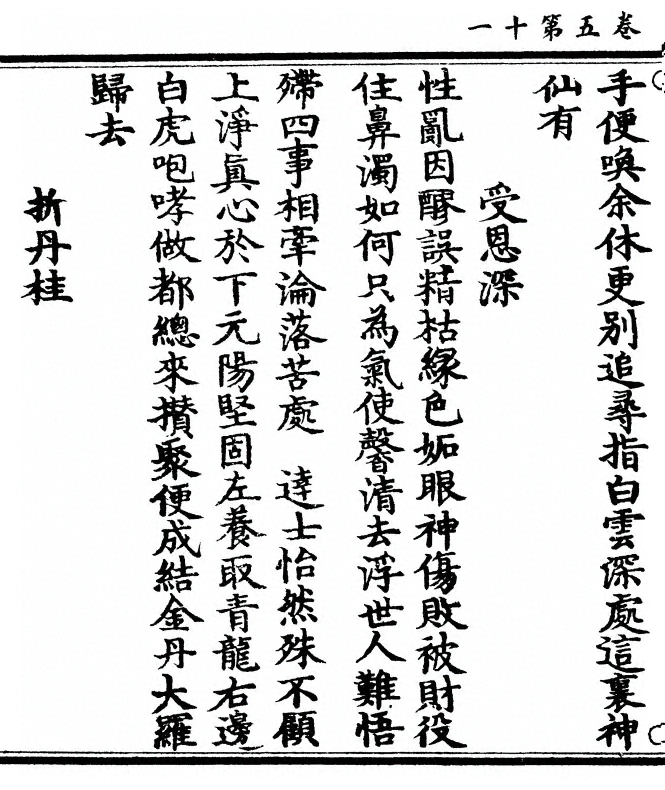 卷五第十一
手便喚余休更别追尋指白雲深處這裏神
仙有
受恩深
性亂因醪誤精枯緣色妬眼神傷敗被財役
住鼻濁如何只為氣使馨清去浮世人難悟
殢四事相牽淪落苦處　達士怡然殊不顧
上淨真心於下元陽堅固左養取青龍右邊
白虎咆哮做都總來攢聚便成結金丹大羅
歸去
折丹桂